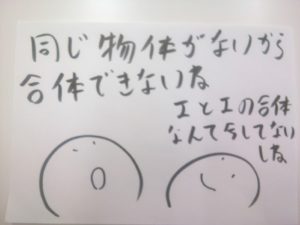 同じ物体がないから
合体できないね
エとエの合体
なんて与してない
しね